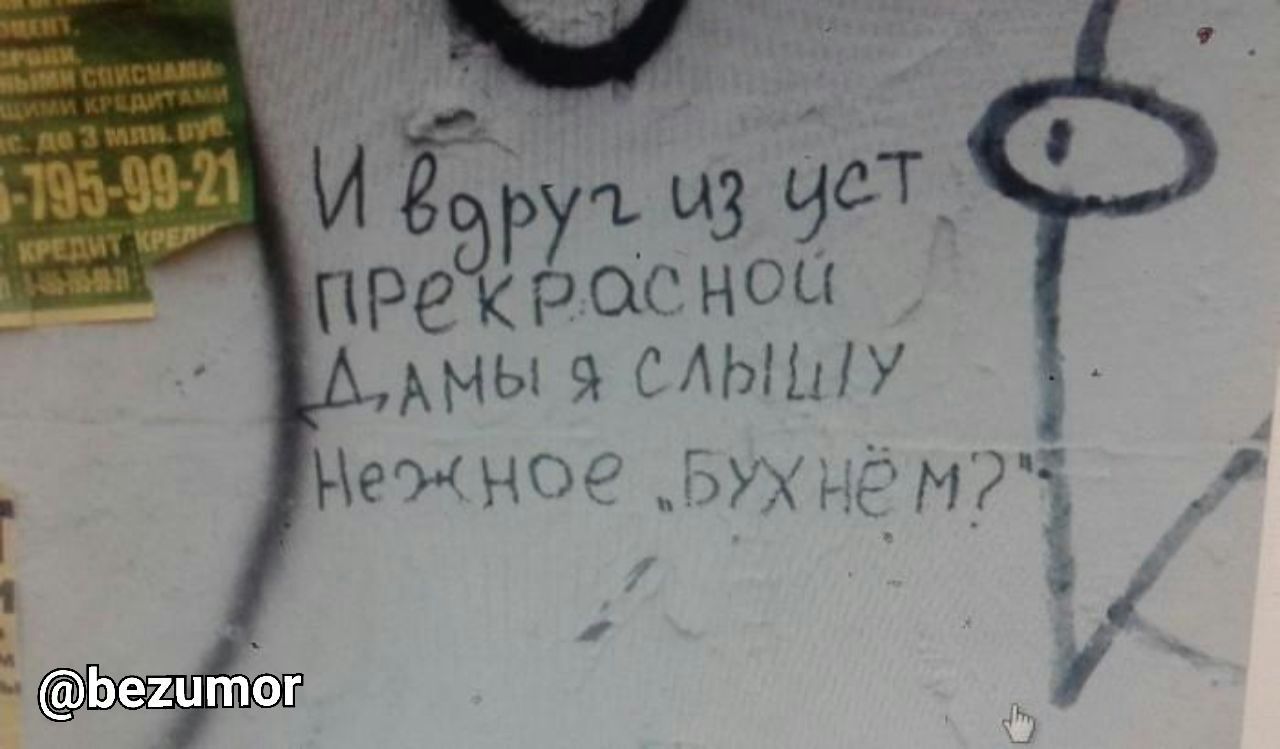 ЦЕНТ.
НЫМИ СПИСКАМИ
ЩИМИ КРЕДИТАМИ
ДО 3 МЛН. РУБ.
-795-99-21
КРЕДИТ КРЕД
И вдруг из уст
прекрасной
Дамы я слышу
Нежное „Бухнём?"
@bezumor